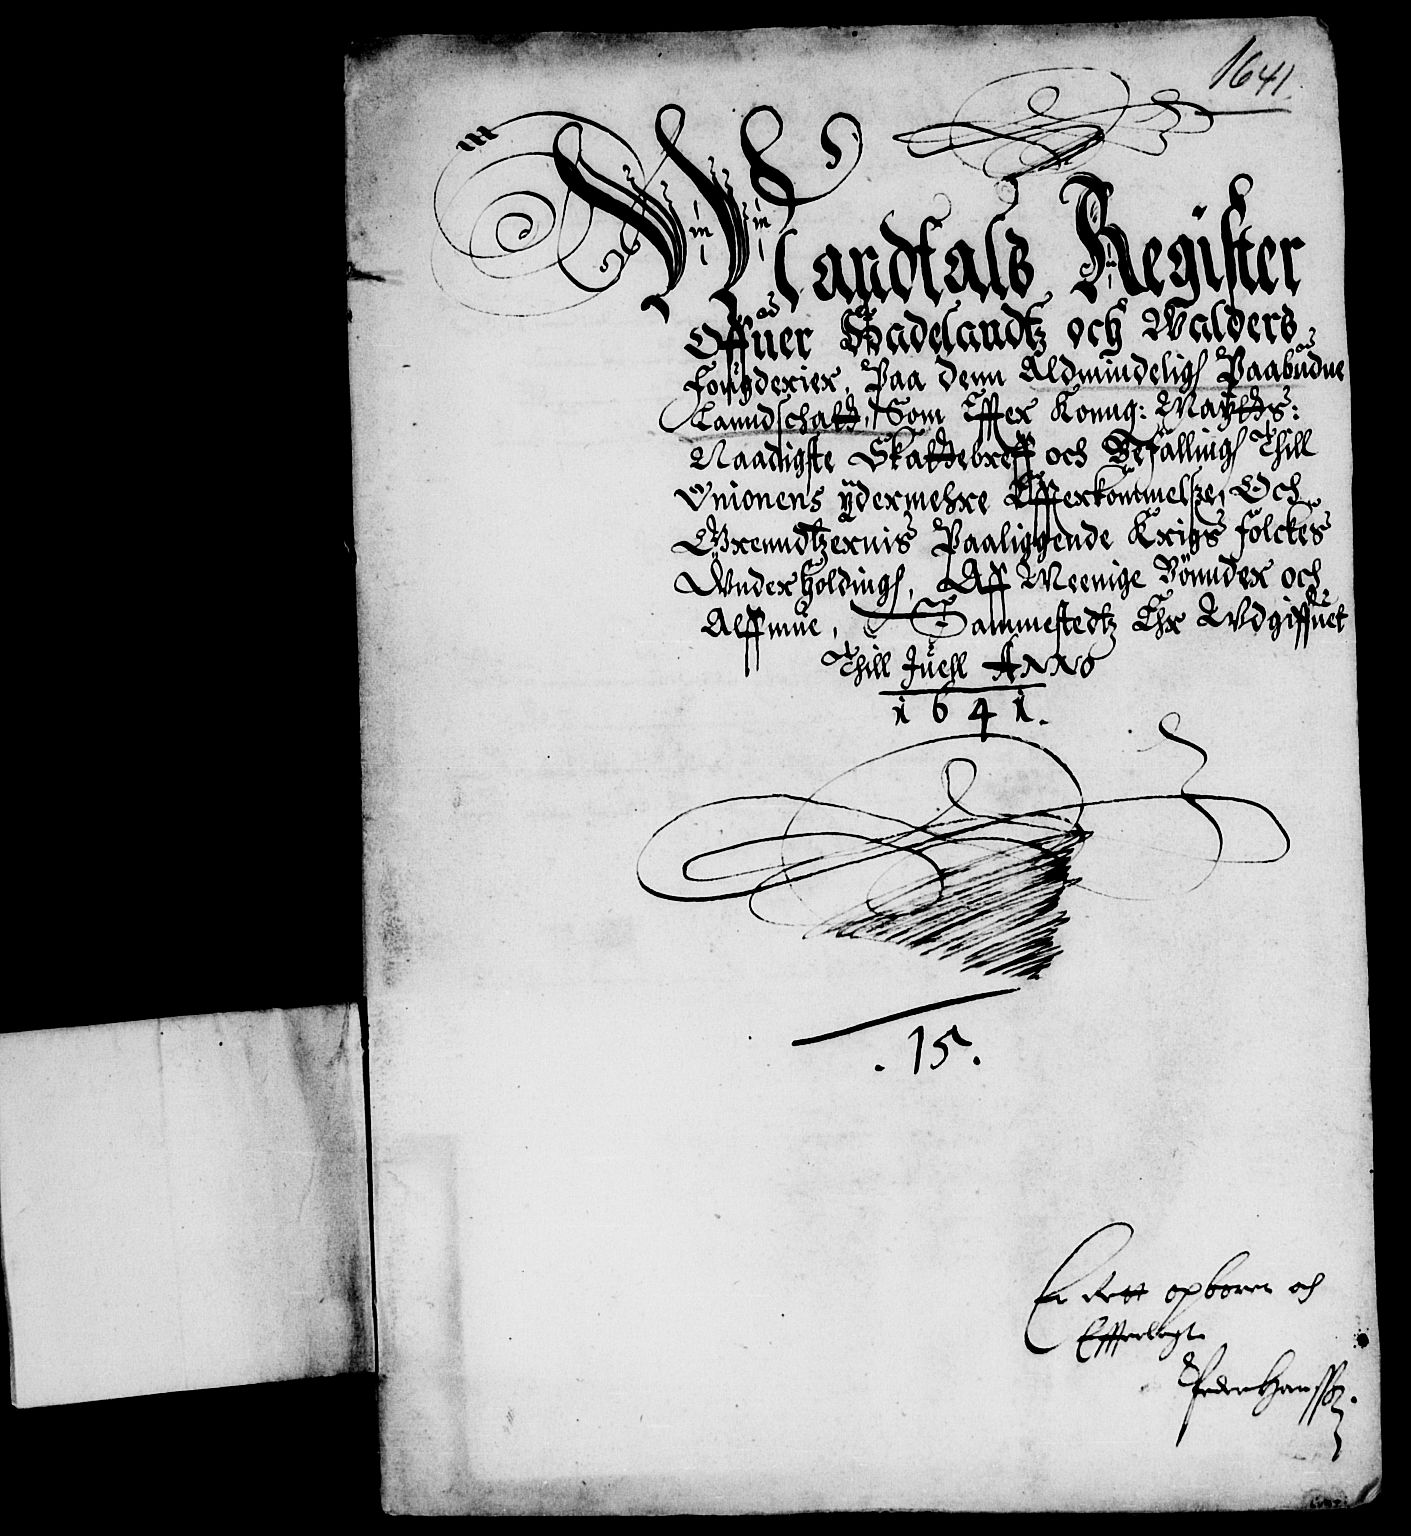 1641
Mandtals Register
Offuer Hadelandtz och Walders
Fougderier, Paa denn Aldmindelig Paabudne
Lanndschatt, Som Effter Konng: Maytts:
Naadigste Skattebreff och Befalling Thill
Vnionens ÿdermehre Efferkommelsze, Och
Grenndtzernis Paaliggende Krigs folckes
Vnderholding, Aff Meenige Bönnder och
Alffmue, Sammestedtz Ehr Vdgiffuet
Thill Juehl ANNO
1641.
. 15 .
Er rett opboren och
Efferlagt
Peder Hanssøn